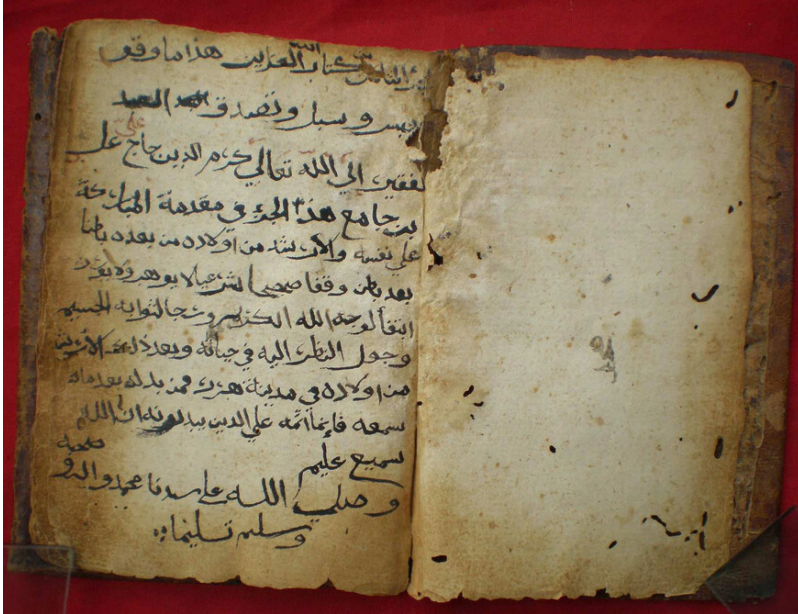 كتاب الله العزيز هذا ما وقف
وحبس وسبل وتصدق العبد
الفقير الي الله تعالي كرم الدين حاج علي
بن جامع هذا الجزء في مقدمة المباركة
علي نفسه والارشد من اولاده من بعده بطنا
بعد بطن وقفا صحيحا شرعيا لا يوهب ولا
ابتغا لوجه الله الكريم ورجا لثوابه الجسيم
وجعل النظر اليه في حياته وبعد ذلك الارشد
من اولاده في مدينة هرر فمن بدله بعد ما
سمعه فإنما اثمه علي الدين يبدلونه ان الله
سميع عليم
وصلي الله علي سيدنا محمد واله و صحبه
وسلم تسليما